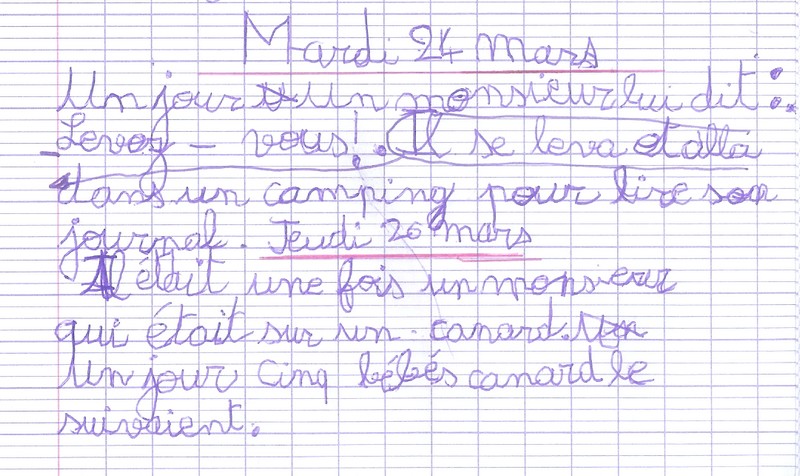 Mardi 24 mars
Un jour un monsieur lui dit :
- Levez - vous ! . Il se leva et alla
dans un camping pour lire son
journal. Jeudi 26 mars
Il était une fois un monsieur
qui était sur un canard.
Un jour cinq bébés canard le
suivaient.